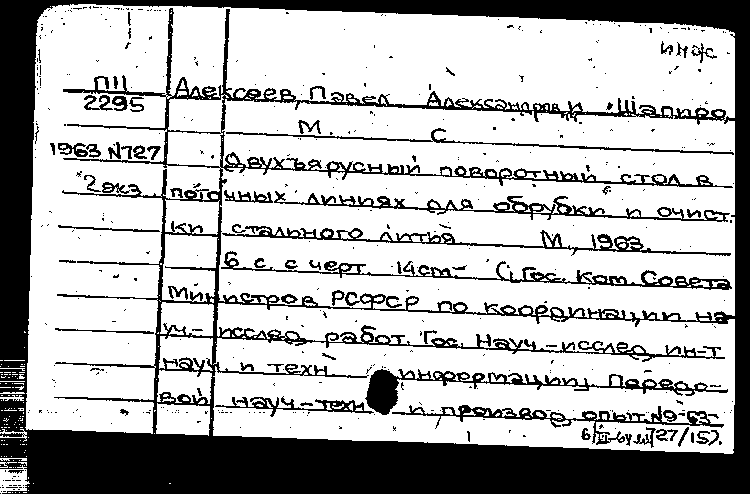 инж
П11
2295
Алексеев, Павел Александрович и Шапиро,
М. С
1963 N727
Двухъярусный поворотный стол в
2 экз
поточных линиях для обрубки и очист-
ки стального литья М., 1963.
6 с. с черт. 14см- (Гос. Ком. Совета
Министров РСФСР по координации на-
уч.- исслед. работ. Гос. Науч.-исслед. ин-т
науч. и техн информации. Передо-
вой науч-техн и производ. опыт. №9-63-
727/15).